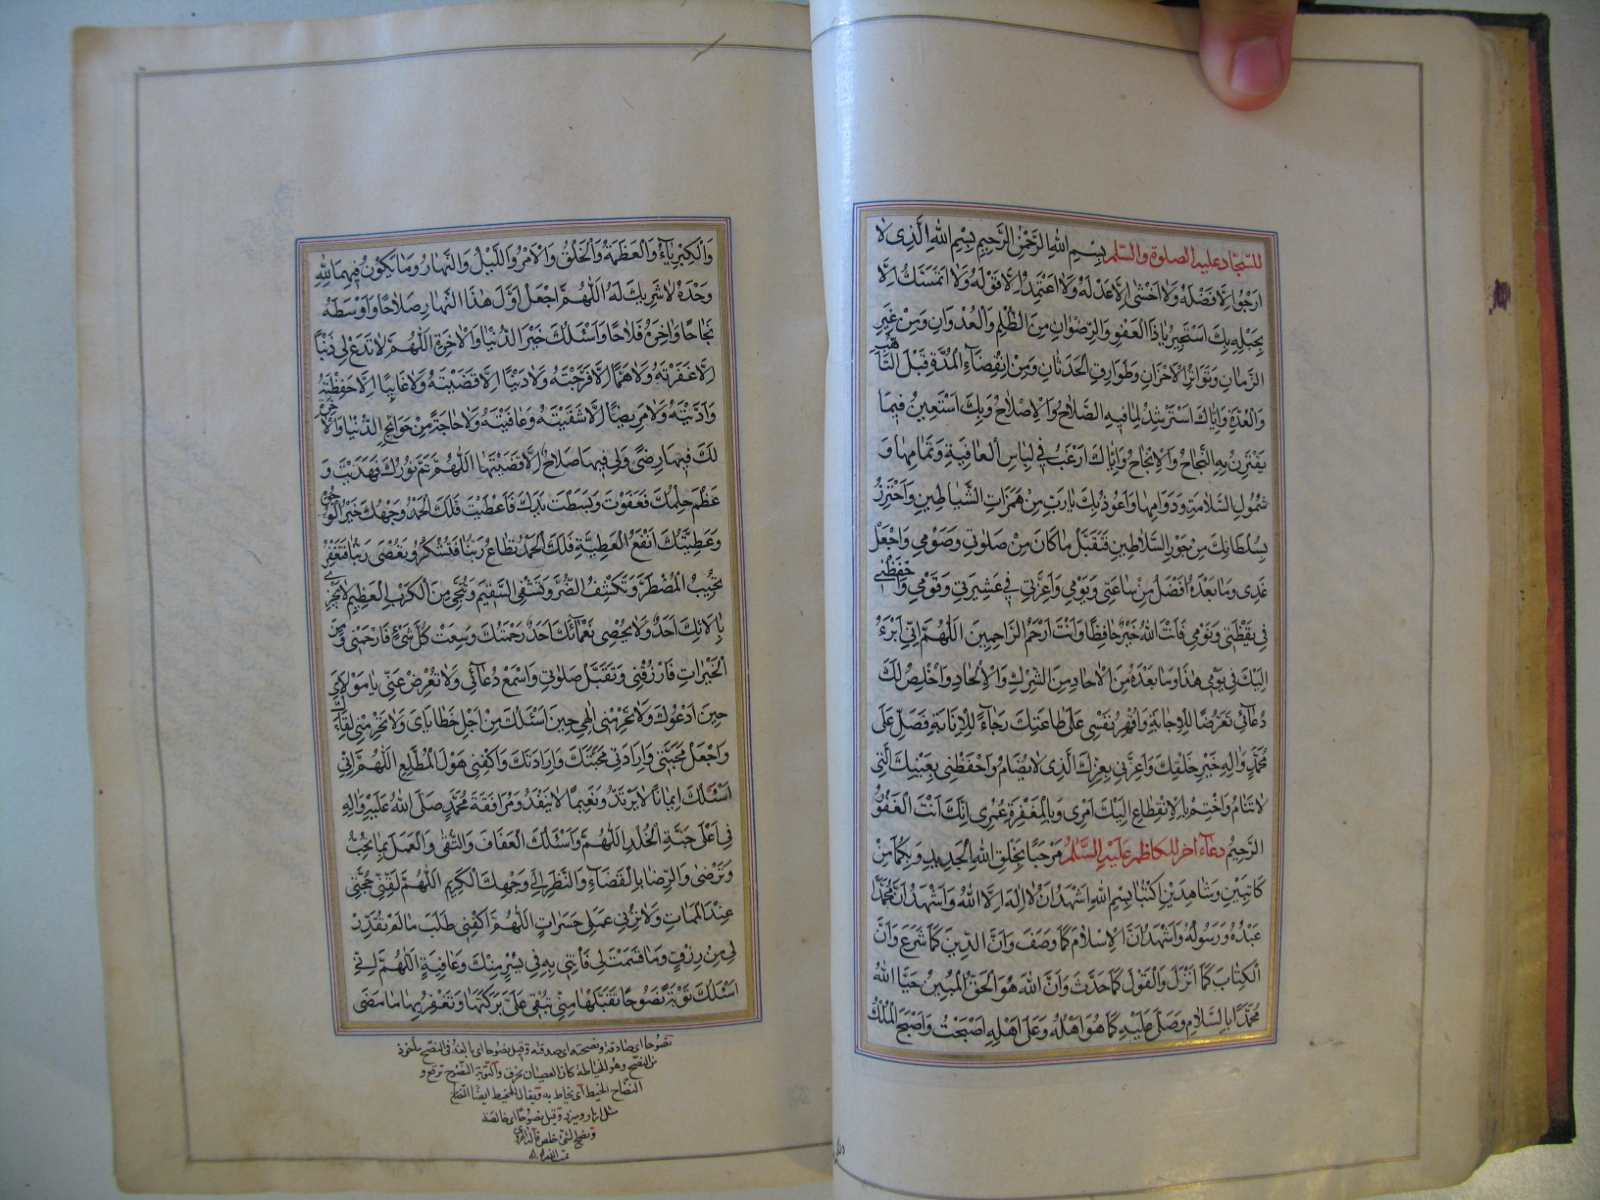 للسجاد عليه الصلوة والسلم بسم الله الرحمن الرحيم بسم الله الذى لا
ارجوا الا فضله ولا اخشى الا عدله ولا اعتمد الا قوله ولا اتمسك الا
بحبله بك استجير يا ذا العفو والرضوان من الظلم والعدوان ومن غير
الزمان وتواتر الاحزان وطوارق الحدثان ومن انقضاء المدة قبل التاهب
والعدة واياك استرشد لما فيه الصلاح والاصلاح وبك استعين فيما
يقترن به النجاح والانجاح واياك ارغب فى لباس العافية وتمامها و
شمول السلامة ودوامها واعوذ بك يا رب من همزات الشياطين واحترز
بسلطانك من جور السلاطين فتقبل ما كان من صلوتى وصومى واجعل
غدى وما بعده افضل من ساعتى ويومى واعزنى فى عشيرتى وقومى واحفظنى
فى يقظتى ونومى فانت الله خير حافظا وانت ارحم الراحمين اللهم انى ابرء
اليك فى يومى هذا وما بعده من الاحاد من الشرك والالحاد واخلص لك
دعائى تعرضا للاجابة واقهر نفسى على طاعتك رجاء للانابة فصل على
محمد واله خير خلقك واعزنى بعزك الذى لا يضام واحفظنى بعينك التى
لا تنام واختم بالانقطاع اليك امرى وبالمغفرة عمرى انك انت الغفور
الرحيم دعاء اخر للكاظم عليه السلم مرحبا بخلق الله الجديد وبكما من
كاتبين وشاهدين اكتبا بسم الله اشهد ان لا اله الا الله واشهد ان محمدا
عبده ورسوله واشهد ان الاسلام كما وصف وان الدين كما شرع وان
الكتاب كما انزل والقول كما حدث وان الله هو الحق المبين حيا الله
محمدا بالسلام وصلى عليه كما هو اهله وعلى اهله اصبحت واصبح الملك
والكبرياء والعظمة والخلق والامر والليل والنهار وما يكون فيهما لله
وحده لا شريك له اللهم اجعل اول هذا النهار صلاحا واوسطه
نجاحا واخره فلاحا واسئلك خير الدنيا والاخرة اللهم لا تدع لى ذنبا
الا غفرته ولا هما الا فرجته ولا دينا الا قضيته ولا غايبا الا حفظته
واديته ولا مريضا الا شفيته وعافيته ولا حاجة من حوائج الدنيا والاخرة
لك فيها رضى ولى فيها صلاح الا قضيتها اللهم تم نورك فهديت و
عظم حلمك فعفوت وبسطت يدك فاعطيت فلك الحمد وجهك خير الوجوه
وعطيتك انفع العطية فلك الحمد تطاع ربنا فتشكر وتعصى ربنا فتغفر
تجيب المضطر وتكشف الضر وتشفى السقيم وتنجى من الكرب العظيم لا يجزى
بالائك احد ولا يحصى نعمائك احد رحمتك وسعت كل شئ فارحمنى ومن
الخيرات فارزقنى وتقبل صلوتى واسمع دعائى ولا تعرض عنى يا مولاى
حين ادعوك ولا تحرمنى الهى حين اسئلك من اجل خطاياى ولا تحرمنى لقاءك
واجعل محبتى وارادتى محبتك وارادتك واكفنى هول المطلع اللهم انى
اسئلك ايمانا لا يرتد ونعيما لا ينفد ومرافقة محمد صلى الله عليه واله
فى اعلى جنة الخلد اللهم واسئلك العفاف والتقى والعمل بما تحب
وترضى والرضا بالقضاء والنظر الى وجهك الكريم اللهم لقنى حجتى
عند الممات ولا ترنى عملى حسرات اللهم اكفنى طلب ما لم تقدر
لى من رزق وما قسمت لى فاتنى به فى يسر منك وعافية اللهم انى
اسئلك توبة نصوحا تقبلها منى تبقى على بركتها وتغفر بها ما مضى
نصوحا اى صادقة ونصحته اى صدقته وقيل نصوحا اى بالغة فى النصح ماخوذ
من النصح وهو الخياطة كان العصيان يخرق والتوبة النصوح ترقع و
النصاح الخيط اى يخاط به ويقال للمخيط ايضا النصاح
مثل ازار وميزر وقيل نصوحا اى خالصة
ونصح الشئ خلص